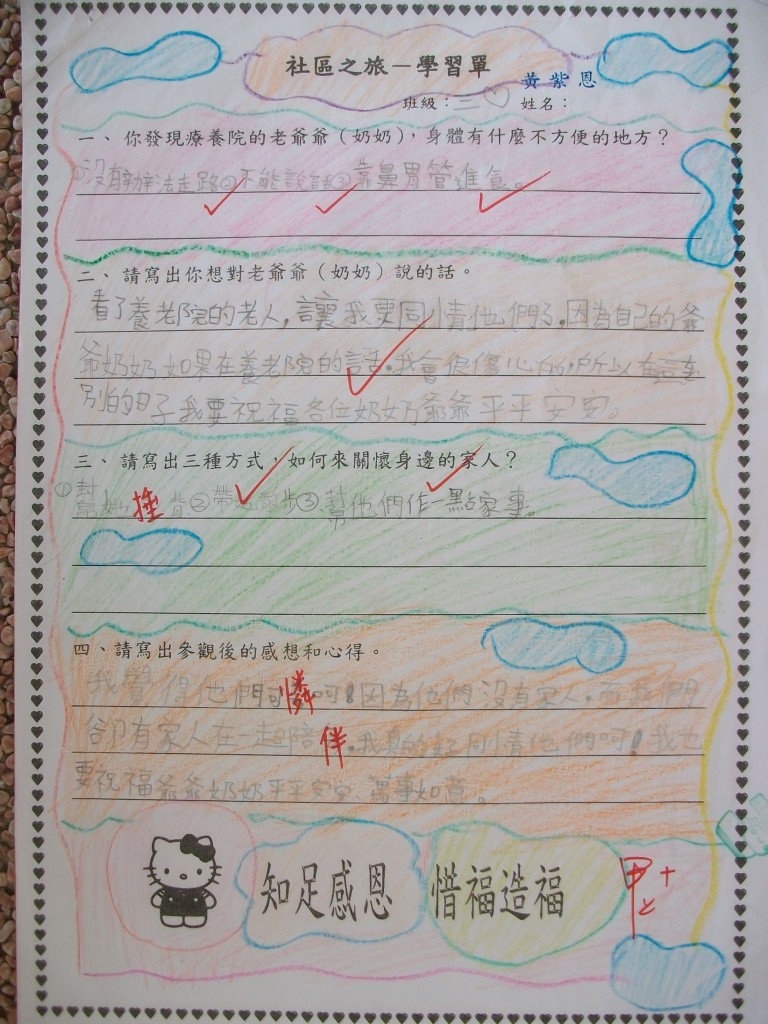 社區之旅－學習單
班級：三 姓名：黃紫恩
一、你發現療養院的老爺爺（奶奶），身體有什麼不方便的地方？
①沒有辦法走路②不能說話③靠鼻胃管進食。
二、請寫出你想對老爺爺（奶奶）說的話。
看了養老院的老人，讓我更同情他們了。因為自己的爺
爺奶奶如果在養老院的話。我會很傷心的，所以在這在
別的日子我要祝福各位奶奶爺爺平平安安。
三、請寫出三種方式，如何來關懷身邊的家人？
①幫 捶背②帶 散步③幫他們作一點家事。
四、請寫出參觀後的感想和心得。
我覺得他們可憐呵！因為他們沒有家人。而我們
卻有家人在一起陪伴。我真的好同情他們呵！我也
要祝福爺爺奶奶平平安安、萬事如意。
知足感恩 惜福造福
甲上+